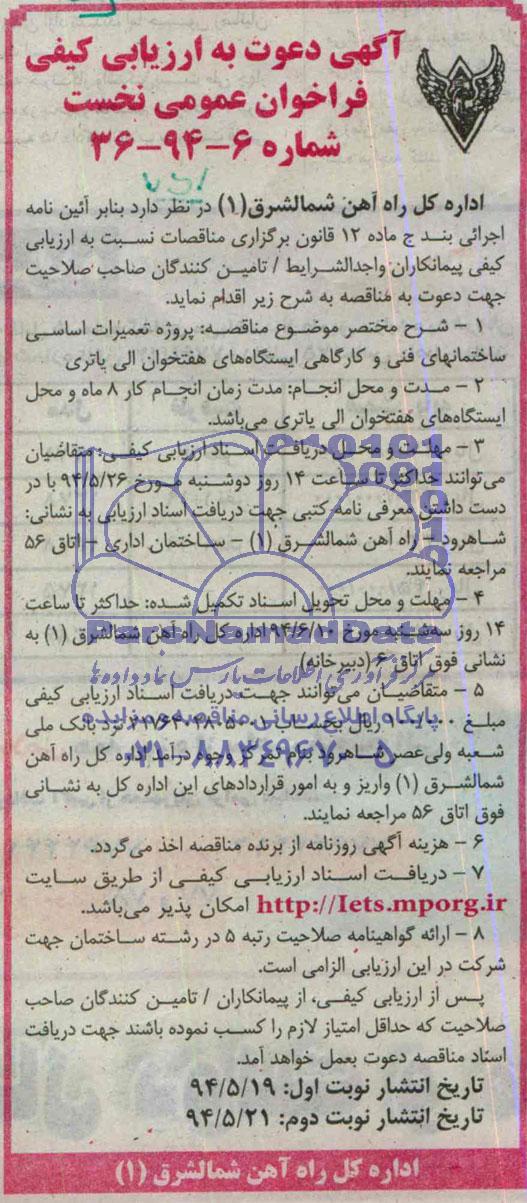 آگهی دعوت به ارزیابی کیفی
فراخوان عمومی نخست
شماره ۶-۹۴-۳۶
اداره کل راه آهن شمالشرق(۱) در نظر دارد بنابر آئین نامه
اجرائی بند ج ماده ۱۲ قانون برگزاری مناقصات نسبت به ارزیابی
کیفی پیمانکاران واجدالشرایط / تامین کنندگان صاحب صلاحیت
جهت دعوت به مناقصه به شرح زیر اقدام نماید.
۱ - شرح مختصر موضوع مناقصه: پروژه تعمیرات اساسی
ساختمانهای فنی و کارگاهی ایستگاه‌های هفتخوان الی یاتری
۲ - مدت و محل انجام: مدت زمان انجام کار ۸ ماه و محل
ایستگاه‌های هفتخوان الی یاتری می‌باشد.
۳ - مهلت و محل دریافت اسناد ارزیابی کیفی: متقاضیان
می‌توانند حداکثر تا ساعت ۱۴ روز دوشنبه مورخ ۹۴/۵/۲۶ با در
دست داشتن معرفی نامه کتبی جهت دریافت اسناد ارزیابی به نشانی:
شاهرود - راه آهن شمالشرق (۱) - ساختمان اداری - اتاق ۵۶
مراجعه نمایند.
۴ - مهلت و محل تحویل اسناد تکمیل شده: حداکثر تا ساعت
۱۴ روز سه‌شنبه مورخ ۹۴/۶/۱۰ اداره کل راه آهن شمالشرق (۱) به
نشانی فوق اتاق ۶ (دبیرخانه)
۵ - متقاضیان می‌توانند جهت دریافت اسناد ارزیابی کیفی
مبلغ ریال بحساب نزد بانک ملی
شعبه ولی‌عصر شاهرود بنام تمرکز وجوه درآمد اداره کل راه آهن
شمالشرق (۱) واریز و به امور قراردادهای این اداره کل به نشانی
فوق اتاق ۵۶ مراجعه نمایند.
۶ - هزینه آگهی روزنامه از برنده مناقصه اخذ می‌گردد.
۷ - دریافت اسناد ارزیابی کیفی از طریق سایت
http://Iets.mporg.ir امکان پذیر می‌باشد.
۸ - ارائه گواهینامه صلاحیت رتبه ۵ در رشته ساختمان جهت
شرکت در این ارزیابی الزامی است.
پس از ارزیابی کیفی، از پیمانکاران / تامین کنندگان صاحب
صلاحیت که حداقل امتیاز لازم را کسب نموده باشند جهت دریافت
اسناد مناقصه دعوت بعمل خواهد آمد.
تاریخ انتشار نوبت اول: ۹۴/۵/۱۹
تاریخ انتشار نوبت دوم: ۹۴/۵/۲۱
اداره کل راه آهن شمالشرق (۱)
ParsNamadData
مرکز فرآوری اطلاعات پارس نماد داده ها
پایگاه اطلاع رسانی مناقصه و مزایده
۰۲۱-۸۸۳۴۹۶۷۰-۵